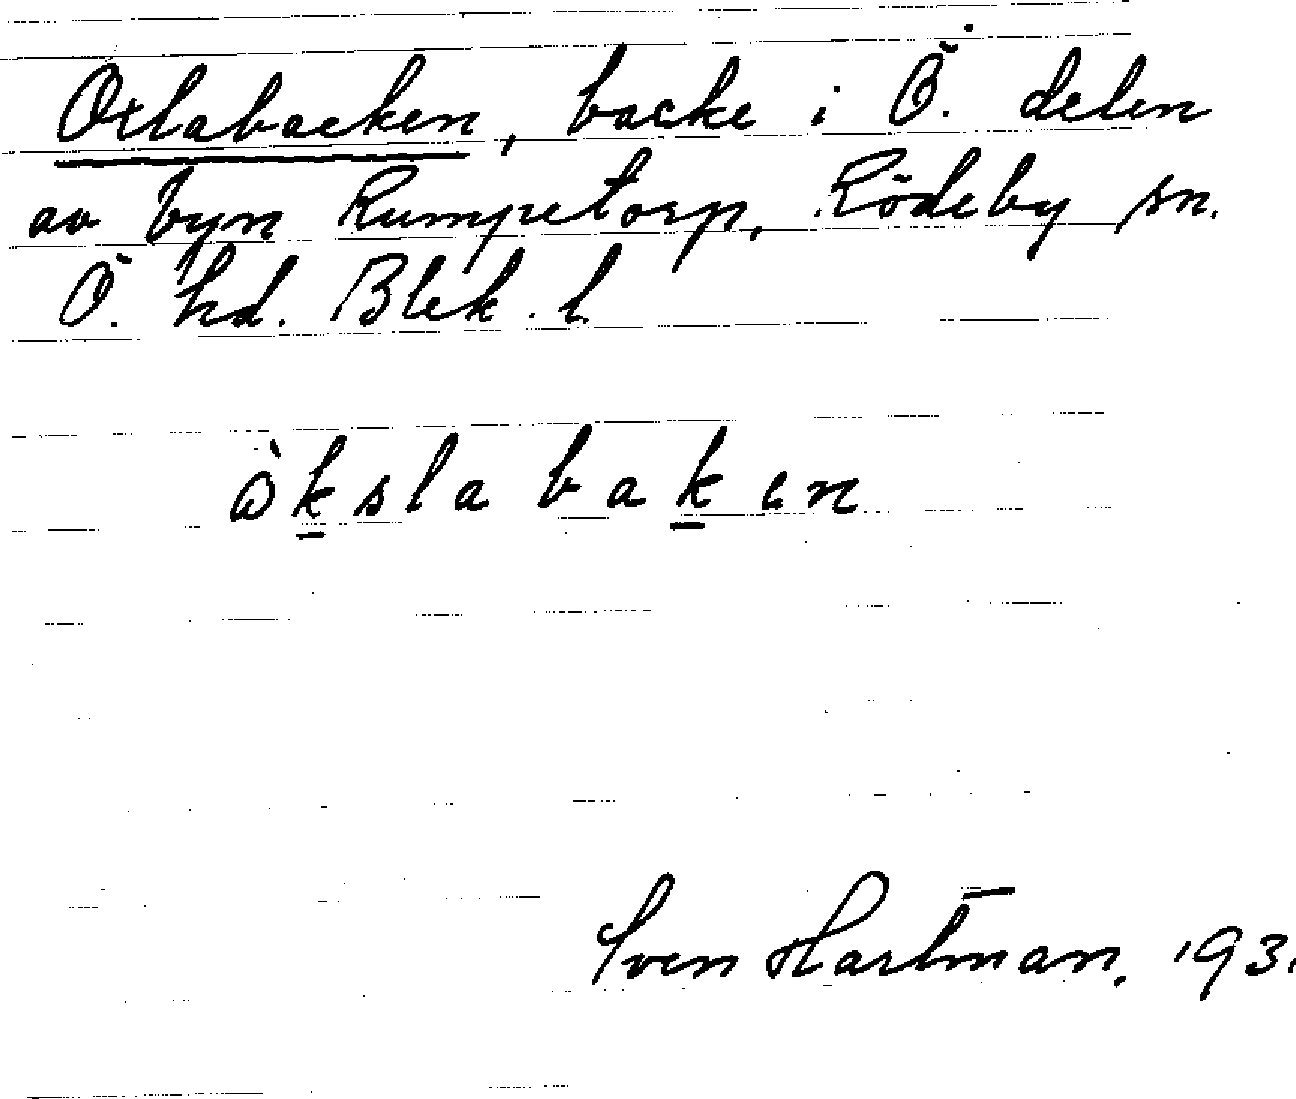 Oxlabacken, backe i Ö. delen
av byn Rumpetorp, Rödeby sn.
Ö. hd. Blek. l.
òkslabaken
Sven Hartman. 193.